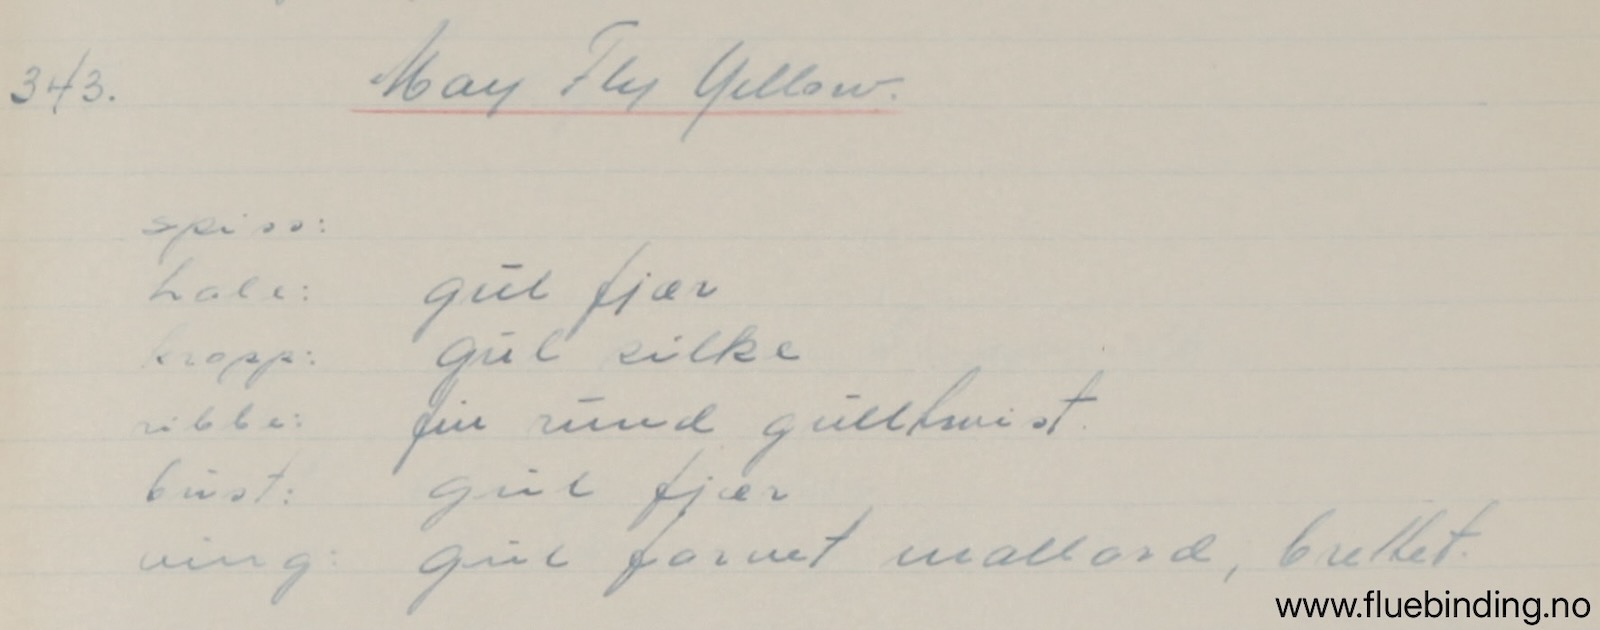 343. May Fly Yellow.
spiss:
hale: gul fjær
kropp: gul silke
ribbe: fin rund gulltwist.
bust: gul fjær
ving: gul farvet mallard, brettet.
www.fluebinding.no